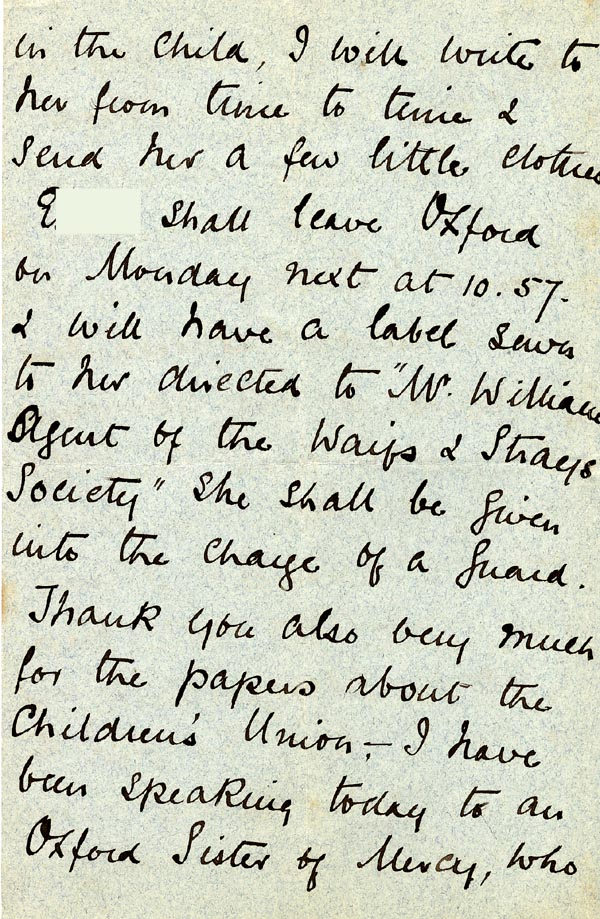 in the Child, I will write to
her from time to time &
send her a few little clothes
E shall leave Oxford
on Monday next at 10.57.
& will have a label sewn
to her directed to "Mr. William
Agent of the Waifs & Strays
Society" She shall be given
into the charge of a guard.
Thank you also very much
for the papers about the
Children's Union; – I have
been speaking today to an
Oxford Sister of Mercy, who